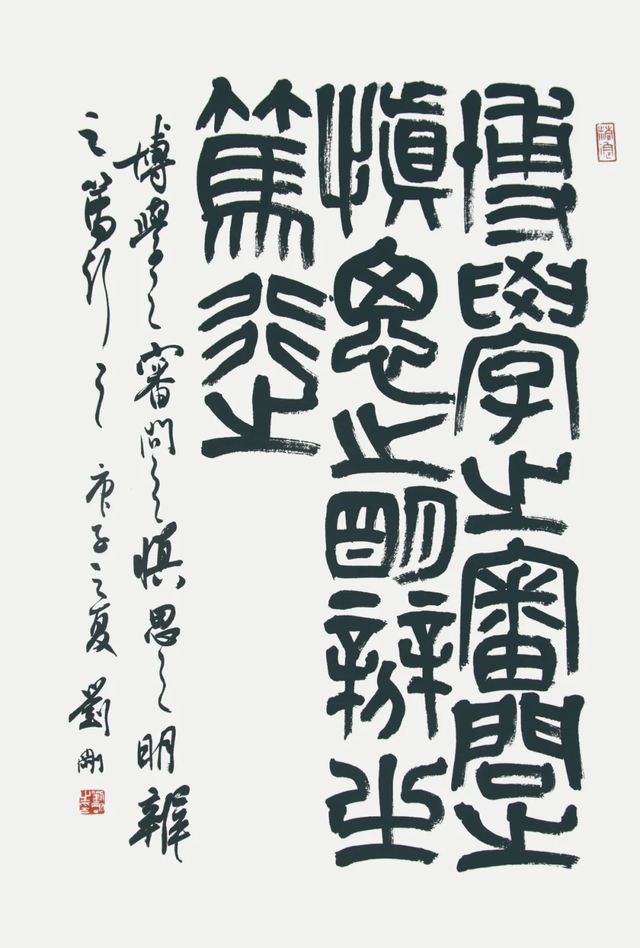 博學之審問之
慎思之明辨之
篤行之
博學之審問之慎思之明辨
之篤行之 庚子之夏 劉剛